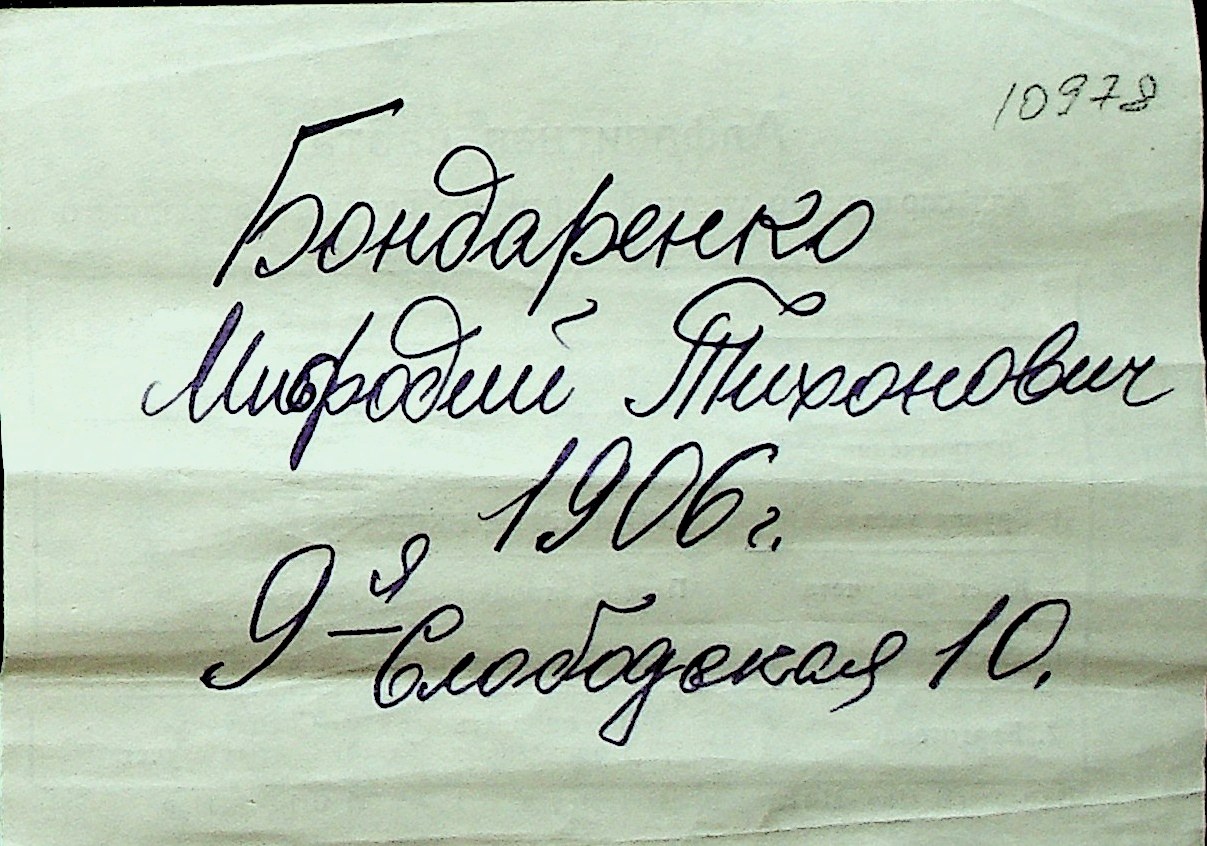 10978
Бондаренко
Мифодий Тихонович
1906 г.
9-я Слободская 10.